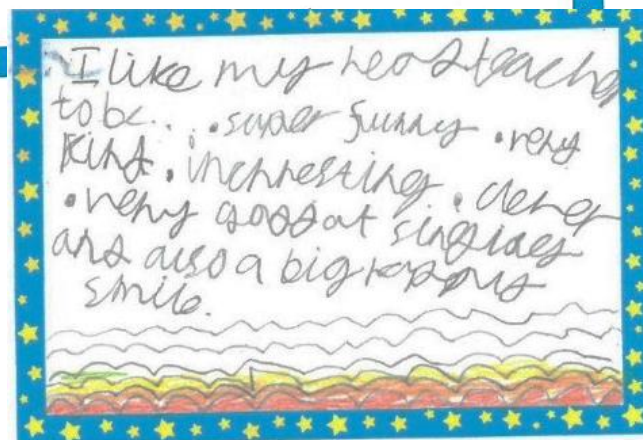 I like my headteacher
to be... . super funny . very
kind . inchresting . clever
. very good at
and also a big happy
smile.